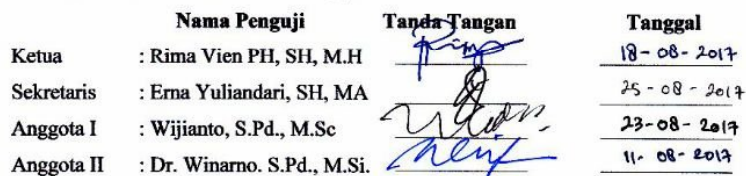 Nama Penguji Tanda Tangan Tanggal
Ketua : Rima Vien PH, SH, M.H 18-08-2017
Sekretaris : Erna Yuliandari, SH, MA 25-08-2017
Anggota I : Wijianto, S.Pd., M.Sc 23-08-2017
Anggota II : Dr. Winarno. S.Pd., M.Si. 11-08-2017